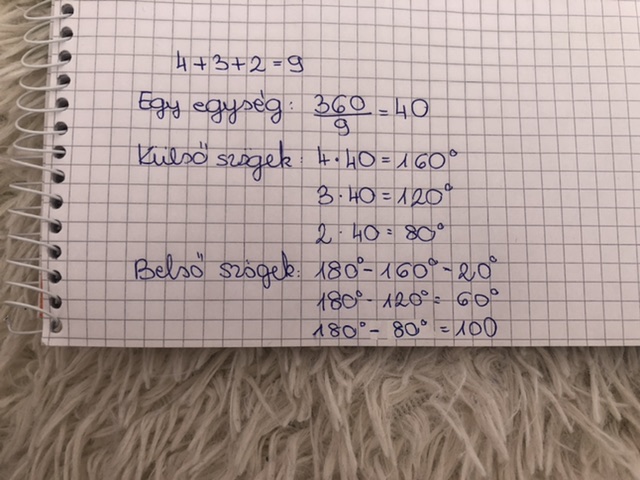 4+3+2=9
Egy egység: 360/9 = 40
Külső szögek: 4·40=160°
3·40=120°
2·40=80°
Belső szögek: 180°-160°-20°
180°-120°= 60°
180°- 80° =100